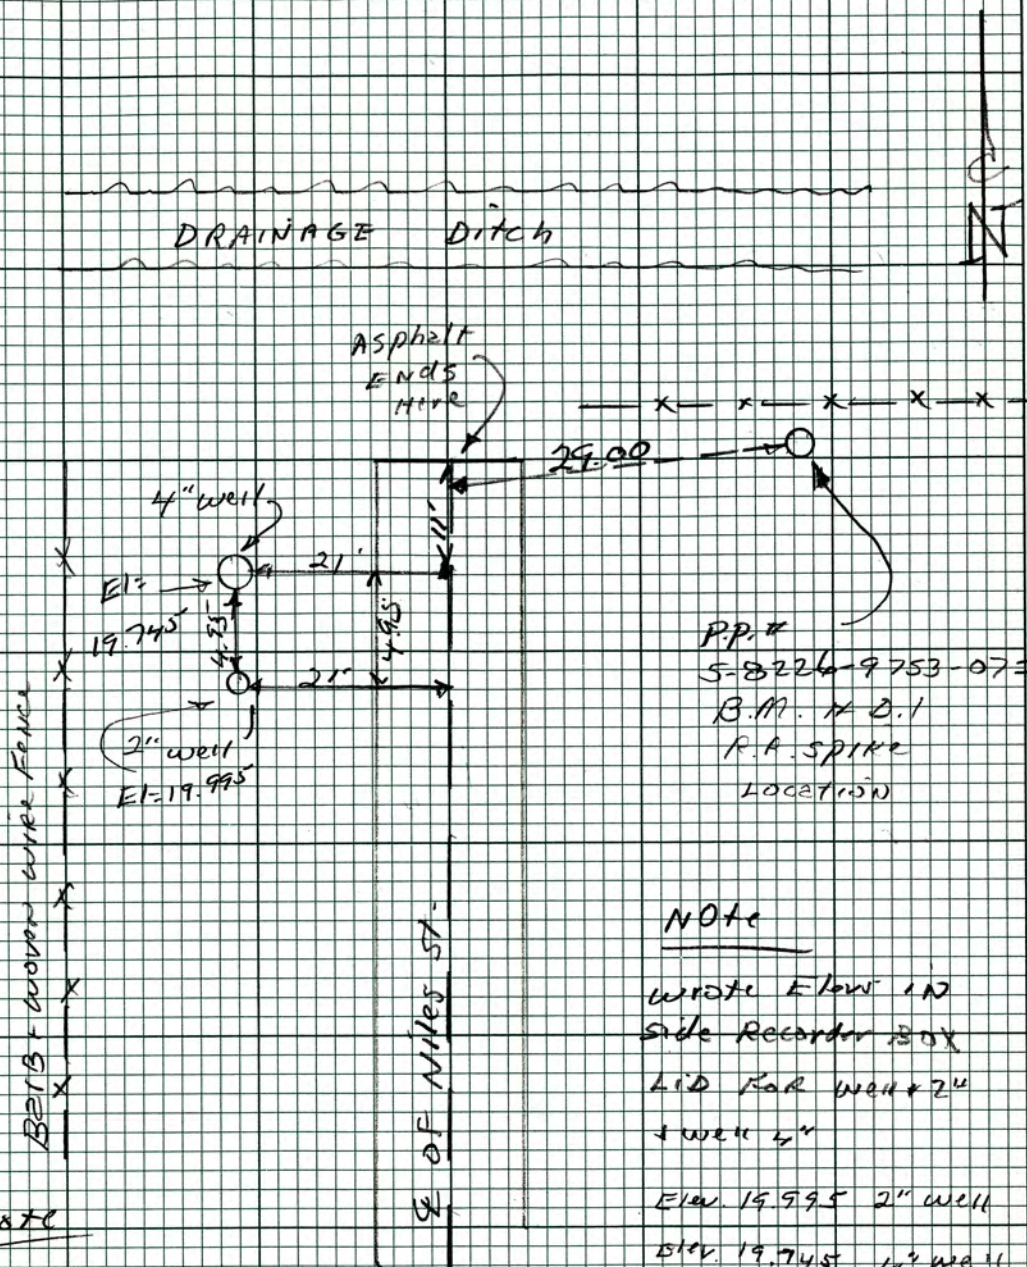 N
DRAINAGE Ditch
Asphalt
ENds
Here
29.00
4" well
11'
21'
El=
19.745
4.95
4.95
21'
2" well
El=19.995
P.P. #
5-8226-9753-07
B.M. # 0.1
R.R. Spike
Location
BarB + Woven Wire Fence
℄ OF Niles St.
NOte
wrote Elevs in
side Recorder BOX
LiD FOR well 2"
+ well 4"
Elev. 19.995 2" well
Elev. 19.745 4" well